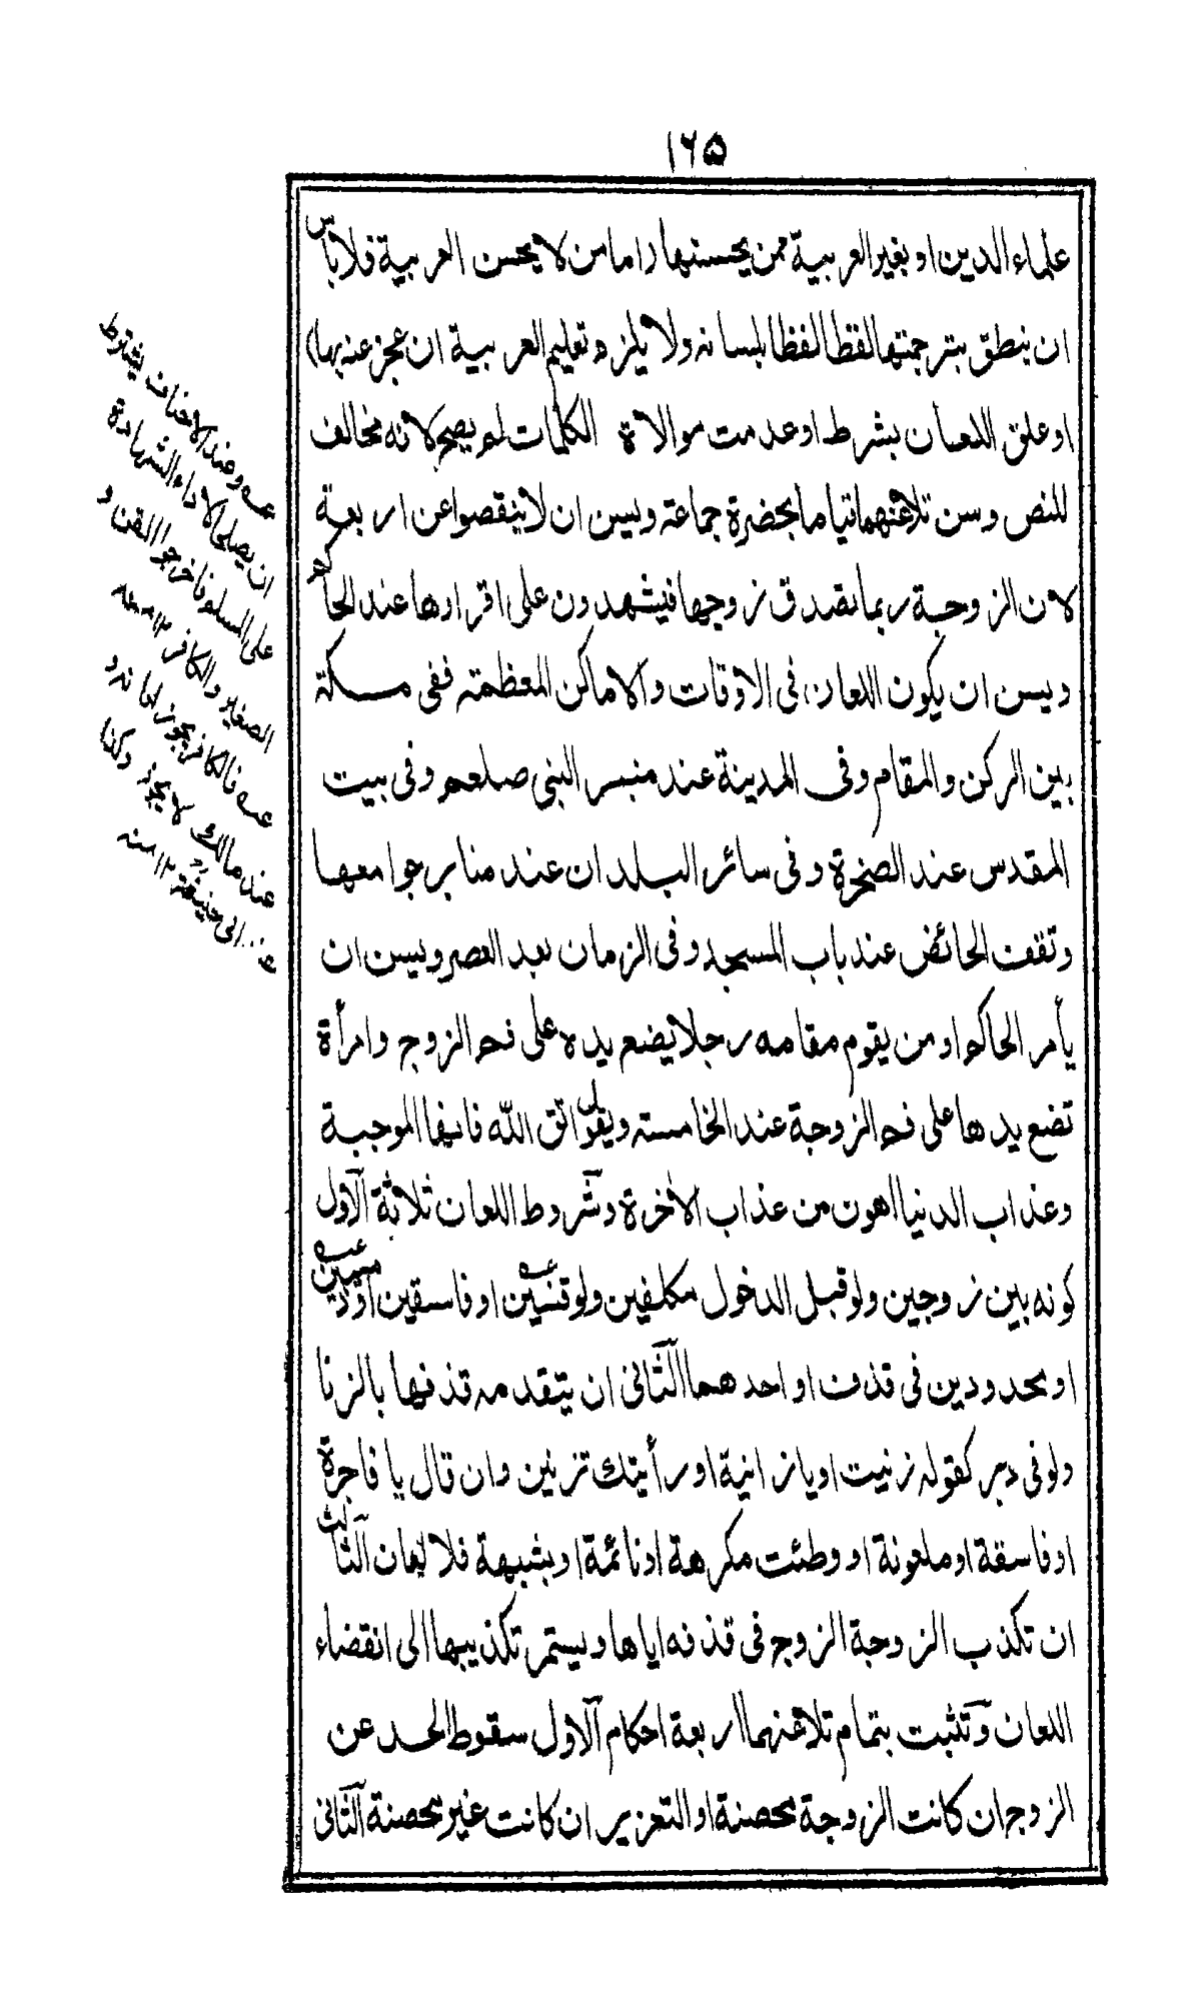 ١٦٥
علماء الدين او بغير العربية ممن يحسنها (امامن لا يحسن العربية فلا بأس
ان ينطق بترجمتها لفظا لفظا بلسانه ولا يلزمه تعليم العربية ان عجز عنه بها)
او علق اللعان بشرط او عدمت موالاة الكلمات لم يصح لانه مخالف
للنص وسن تلاعنهما قياما بحضرة جماعة ويسن ان لا ينقصوا عن اربعة
لان الزوجة ربما تصدق زوجها فيشهدون على اقرارها عند الحاكم
ويسن ان يكون اللعان فى الاوقات والاماكن المعظمة ففى مكة
بين الركن والمقام وفى المدينة عند منبر النبى صلعم وفى بيت
المقدس عند الصخرة وفى سائر البلدان عند منابر جوامعها
وتقف الحائض عند باب المسجد وفى الزمان بعد العصر ويسن ان
يأمر الحاكم او من يقوم مقامه رجلا يضع يده على فم الزوج وامرأة
تضع يدها على فم الزوجة عند الخامسة ويقول اتق الله فانها الموجبة
وعذاب الدنيا اهون من عذاب الاخرة وشروط اللعان ثلاثة الاول
كونه بين زوجين ولو قبل الدخول مكلفين ولو قنين او فاسقين او ذميين
او محدودين فى قذف او احدهما الثانى ان يتقدمه قذفها بالزنا
ولو فى دبر كقوله زنيت او يا زانية او رأيتك تزنين وان قال يا فاجرة
او فاسقة او ملعونة او وطئت مكرهة او نائمة او بشبهة فلا لعان الثالث
ان تكذب الزوجة الزوج فى قذفه اياها ويستمر تكذيبها الى انقضاء
اللعان وتثبت بتمام تلاعنهما اربعة احكام الاول سقوط الحد عن
الزوج ان كانت الزوجة محصنة او التعزير ان كانت غير محصنة الثانى
عه وعند الاحناف يشترط
ان يصلحا لاداء الشهادة
على المسلم فاخرجوا القن و
الصغير والكافر ١٢ منه
عه فالكافر يجوز لعانه و
عند مالك لا يجوز وكذا
عند ابى حنيفة ١٢ منه